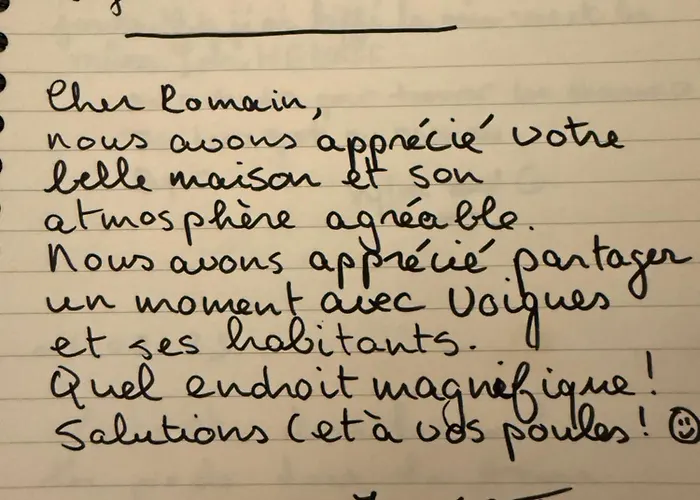 Cher Romain,
nous avons apprécié votre
belle maison et son
atmosphère agréable.
Nous avons apprécié partager
un moment avec Voigues
et ses habitants.
Quel endroit magnifique!
Salutions (et à vos poules! ☺